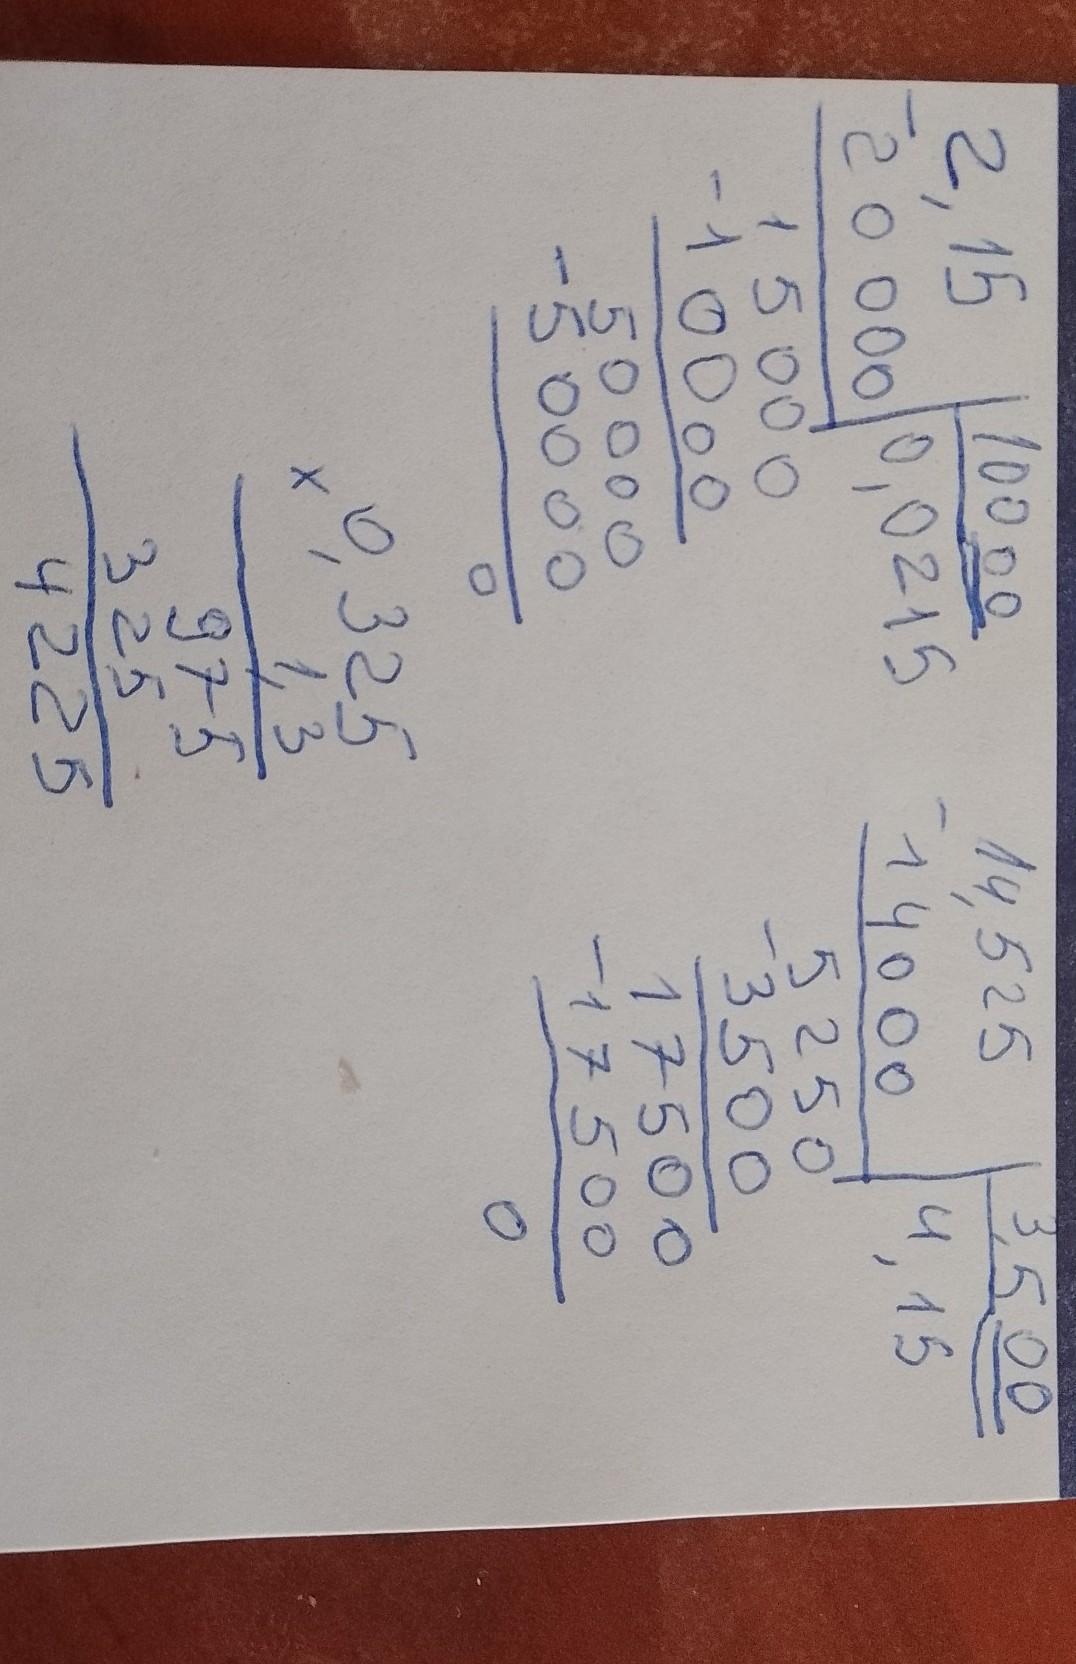 2,15 10000
-20000 0,0215
15000
-10000
50000
-50000
0
14,525 3,500
-14000 4,15
5250
-3500
17500
-17500
0
0,325
x 1,3
975
325
4225